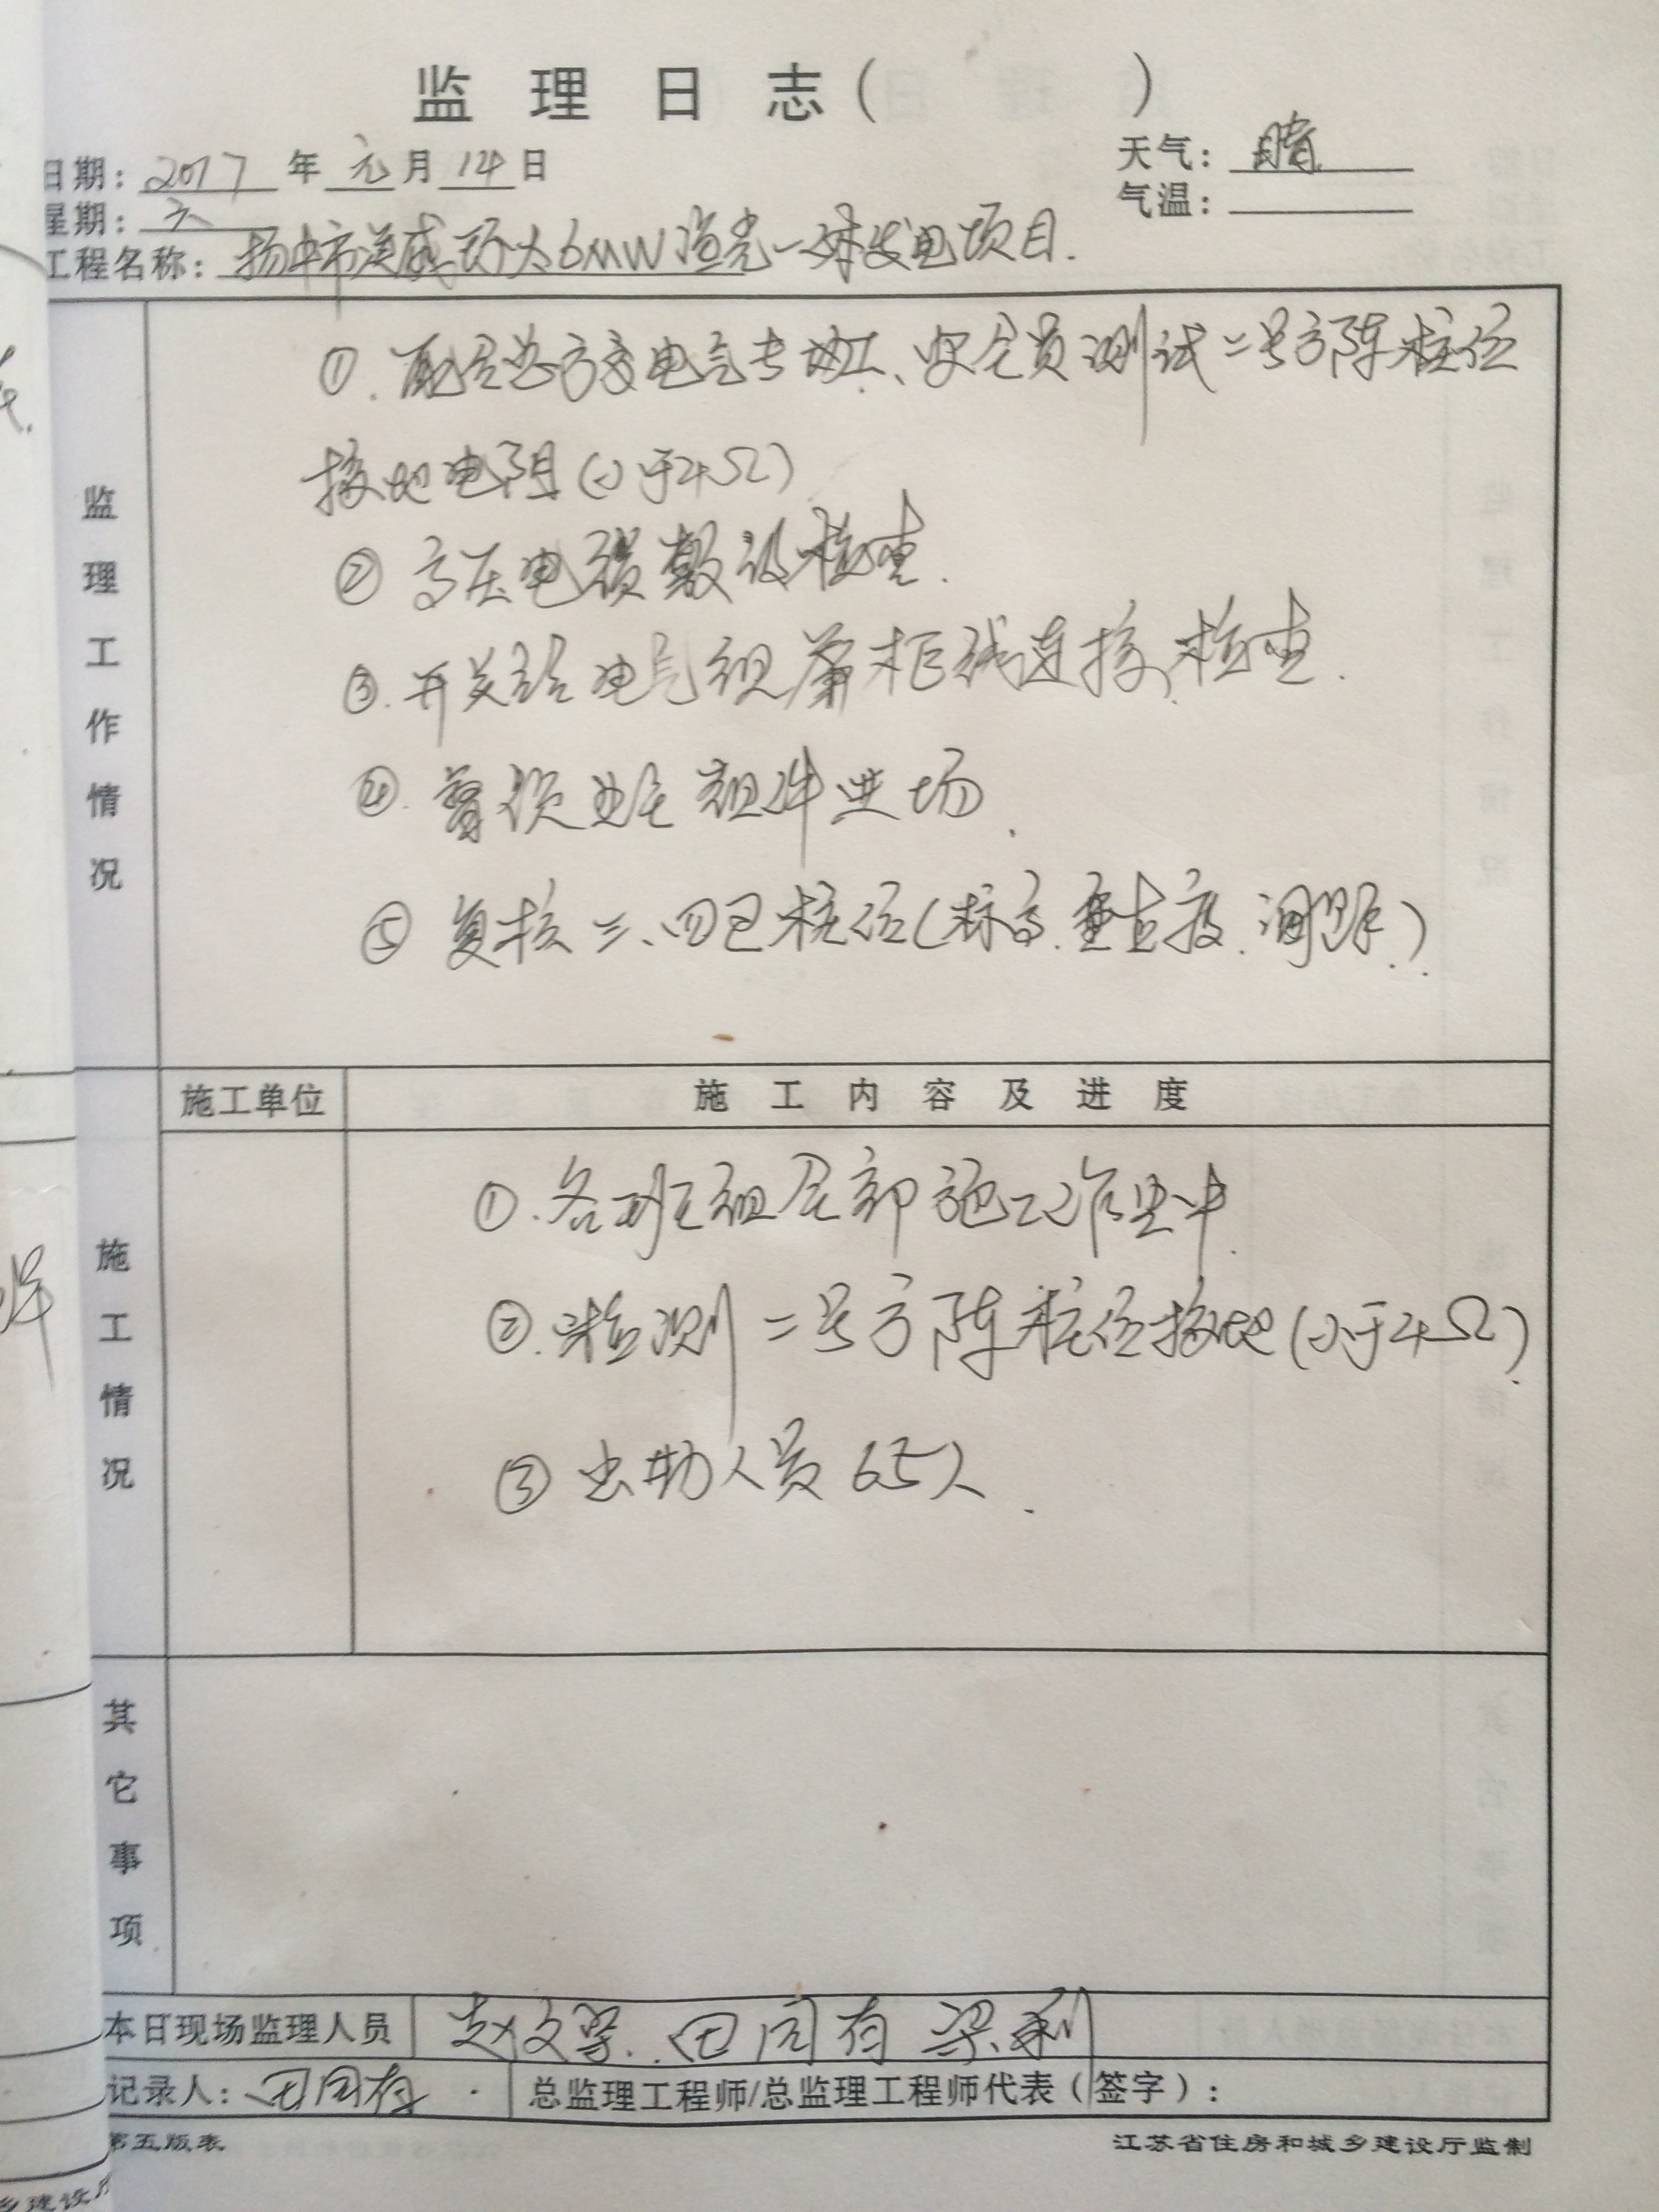 监理日志( )
日期: 2017 年 元 月 14 日
天气: 晴
星期: 六
气温:
工程名称: 扬中市 6MW渔光一体发电项目.
监理工作情况
① 配合总方 电气专 工、安全员测试二号方阵桩位
接地电阻(小于4Ω)
② 高压电缆敷设检查.
③ 开关站电气组 柜线连接检查.
④ 组件 场.
⑤ 复核三、四 桩位(标高.垂直度. )
施工情况
施工单位
施工内容及进度
① 各班组全部施工作业中.
② 检测二号方阵桩位接地(小于4Ω).
③ 出勤人员65人.
其它事项
本日现场监理人员
赵文 . 田同有 梁利
记录人: 田同有.
总监理工程师/总监理工程师代表(签字):
第五版表
江苏省住房和城乡建设厅监制